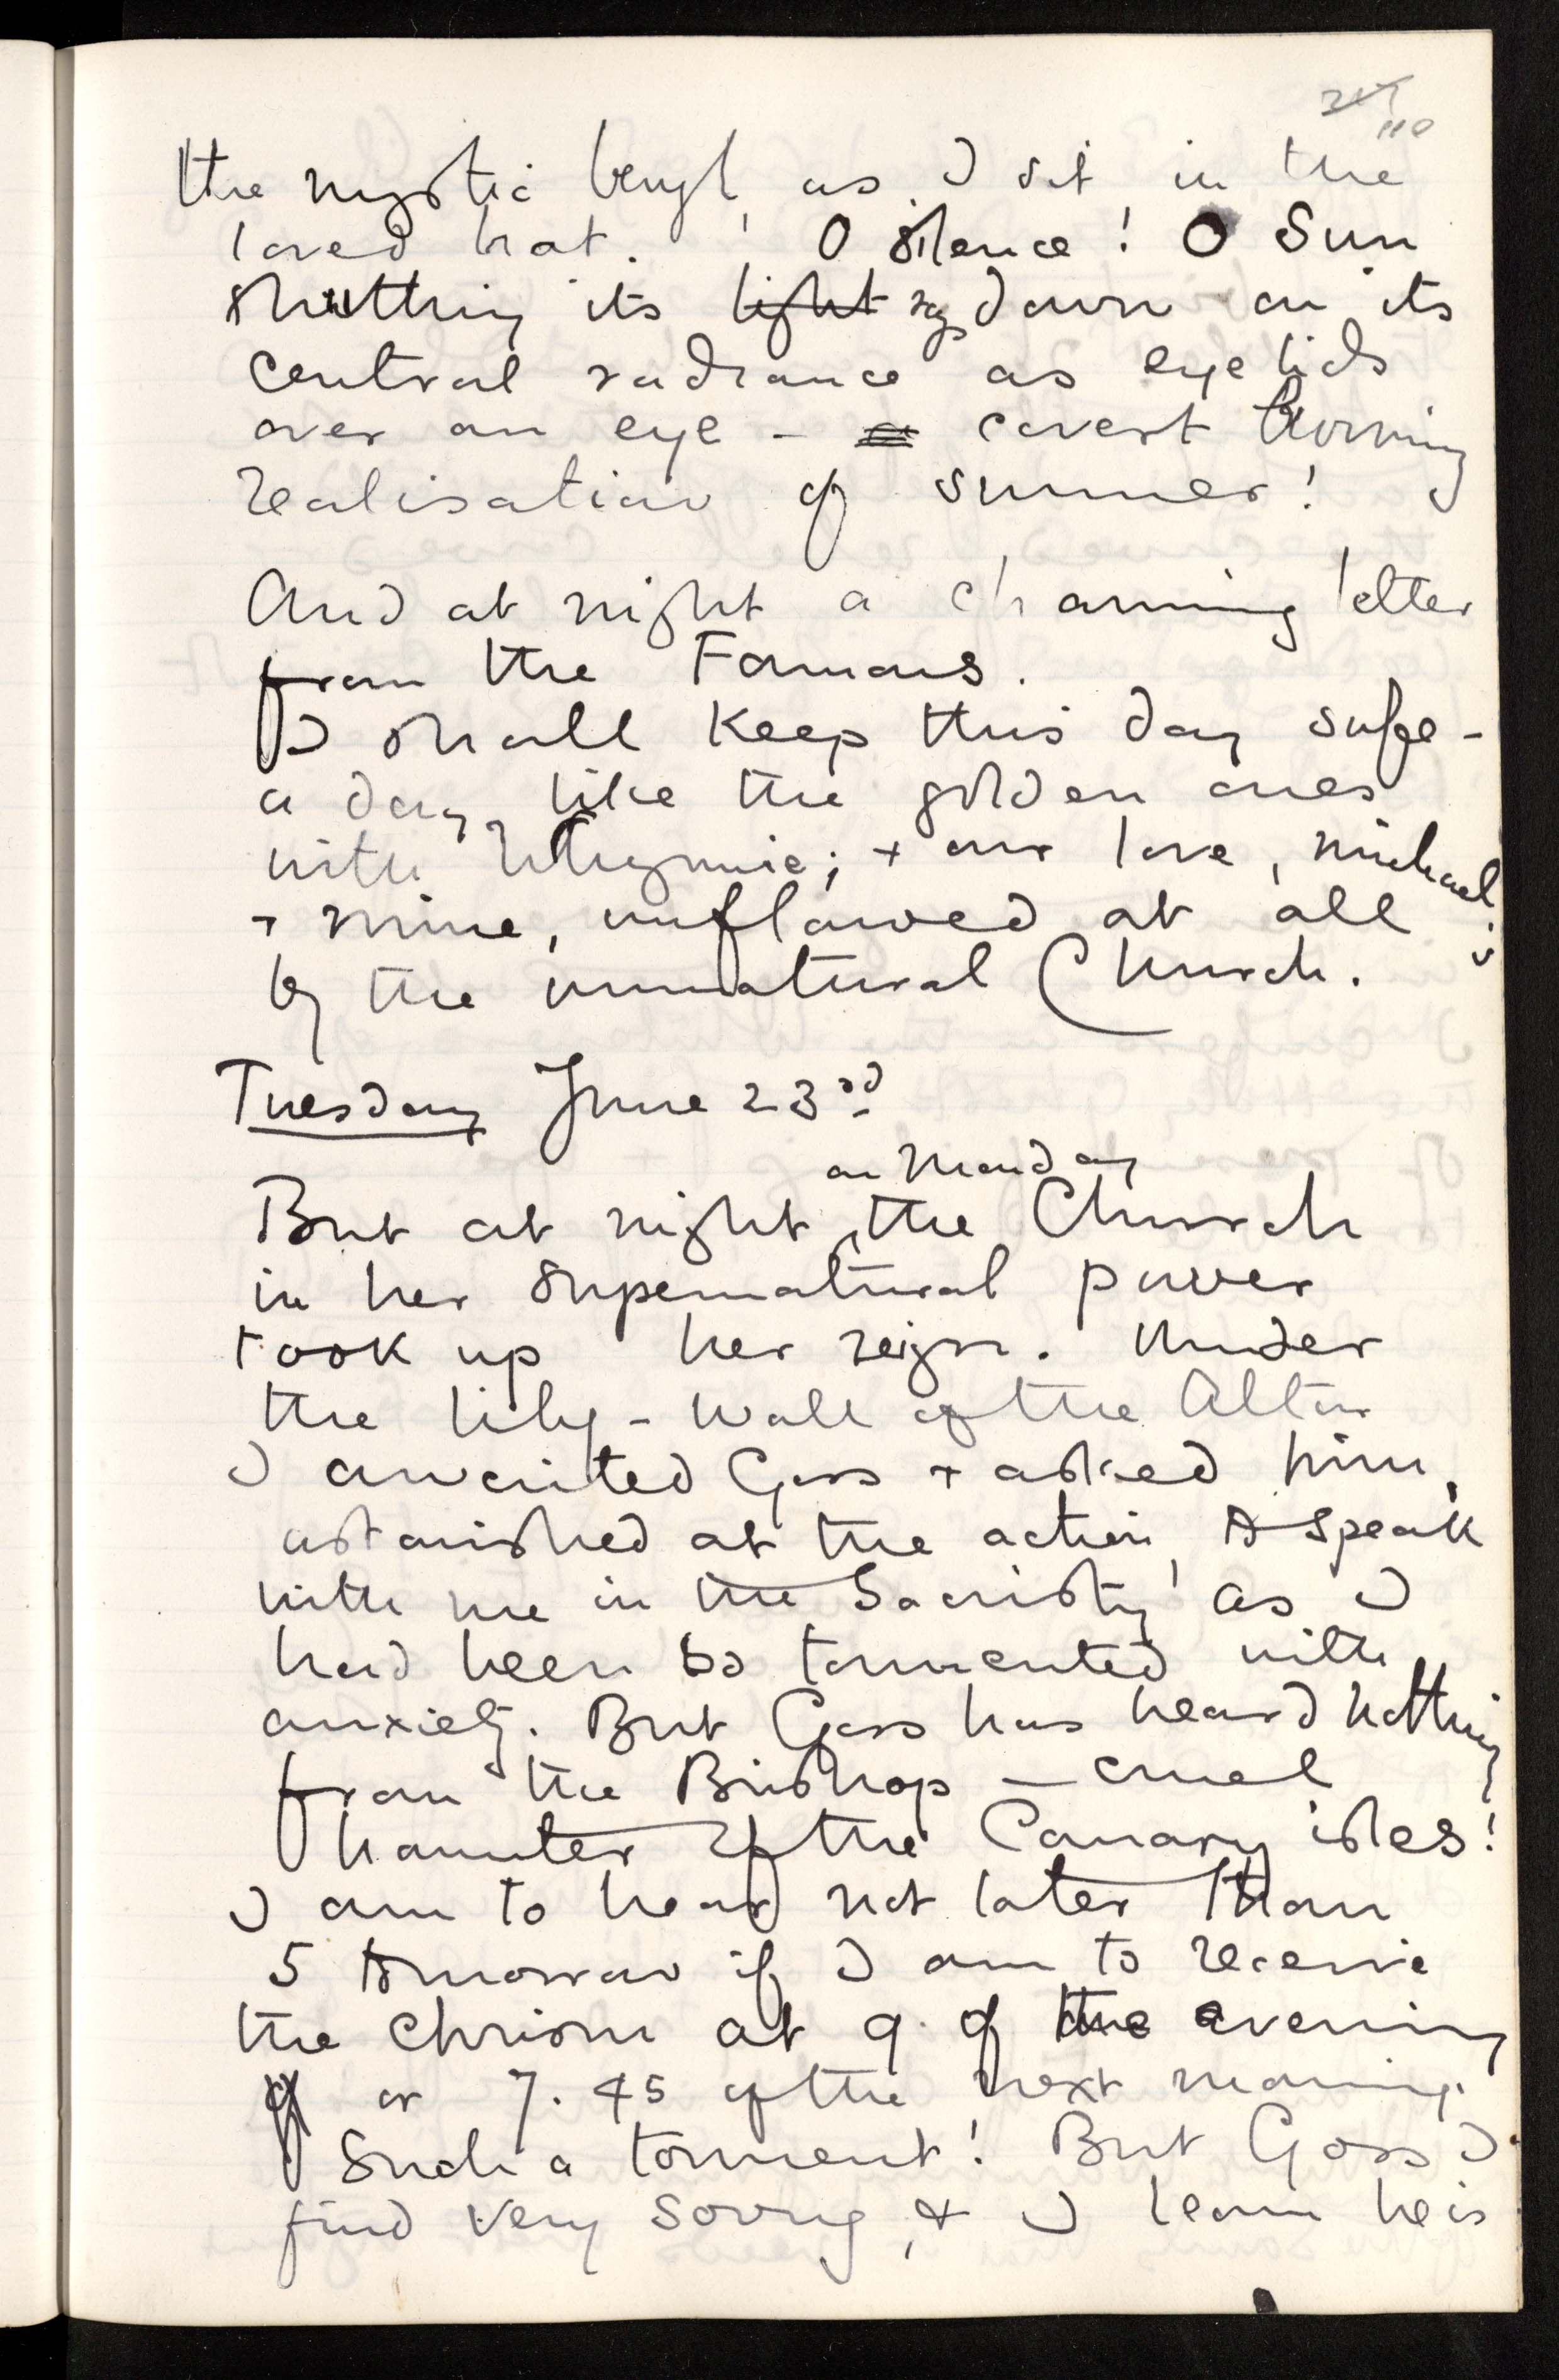 110
the mystic beryl, as I sit in the
loved hat. O silence! O Sun
shutting its light rays down on its
central radiance as eyelids
over an eye - covert burning
realisation of summer!
And at night a charming letter
from the Famous.
I shall keep this day safe -
a day like the golden ones
with Whymmie; + our love, Michael's
+ mine, unflawed at all
by the unnatural Church.
Tuesday June 23rd
on Monday
But at night the Church
in her supernatural power
took up her reign. Under
the lily-wall of the Altar
I awaited Goss + asked him,
astonished at the action, to speak
with me in the Sacristy as I
had been so tormented with
anxiety. But Goss has heard nothing
from the Bishop - cruel
haunter of the Canary isles!
I am to hear not later than
5 tomorrow if I am to receive
the chrism at 9. of the evening
of or 7.45 of the next morning.
Such a torment! But Goss I
find very sorry, & I learn he is